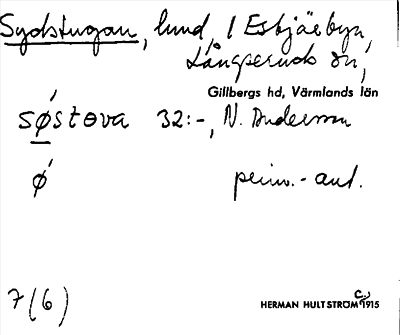 Sydstugan, lund, i Esbjärbyn,
Långseruds sn,
Gillbergs hd, Värmlands län
søstova 32:-, N. Anderson
ǿ
7(6)
HERMAN HULTSTRÖM c. 1915